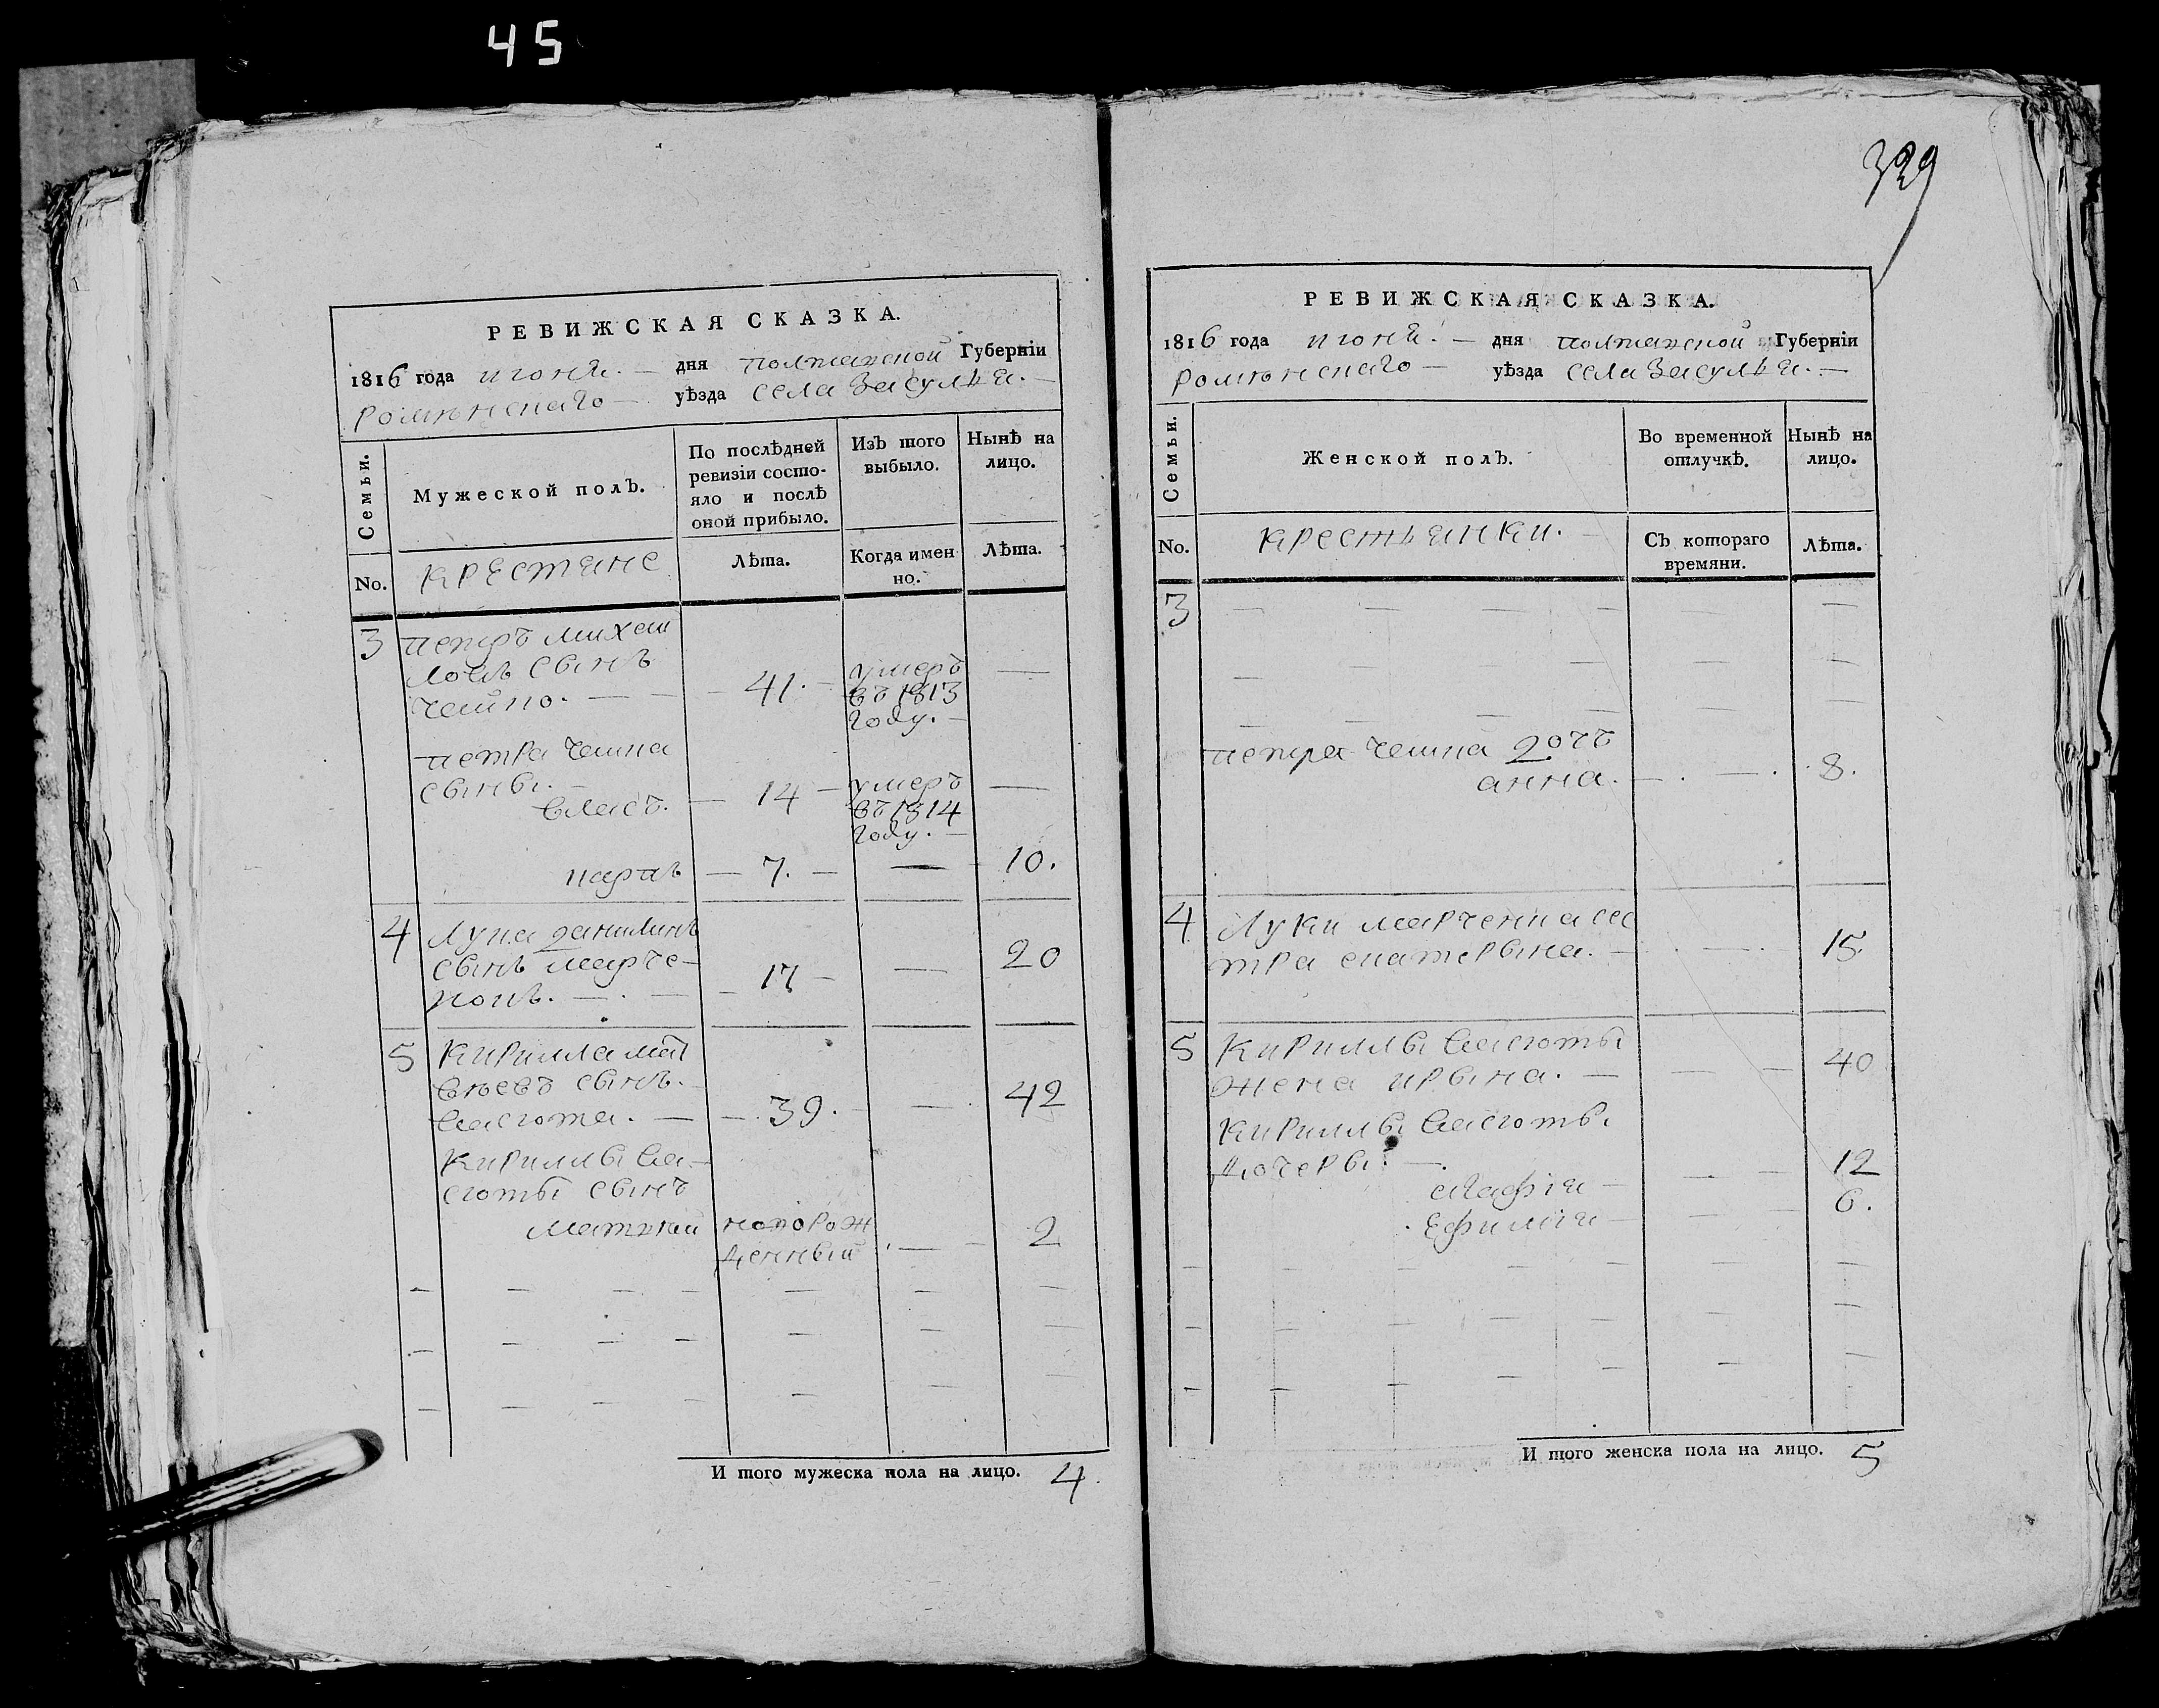 45
329
РЕВИЖСКАЯ СКАЗКА.
1816 года июня. — дня полтавской Губерніи
роменскаго — уѣзда села Засулья. —
Семьи.
Мужеской полъ.
По послѣдней
ревизіи состо-
яло и послѣ
оной прибыло.
Изъ того
выбыло.
Нынѣ на
лицо.
No.
крестяне
Лѣта.
Когда имен
но.
Лѣта.
3 петръ михаи
ловъ сынъ
чайко. — 41. — умеръ —
въ 1813
году. —
петра чайка
сыны. —
власъ. — 14 — умеръ —
въ 1814
году. —
карпъ — 7. — — 10.
4 Лука данилинъ
сынъ марче-
нокъ. — 17 — — 20
5 Кирилла мат
вѣевъ сынъ.
васюта. — 39. — 42
Кириллы ва-
сюты сынъ
матвѣй новорож
денный — 2
И того мужеска пола на лицо. 4.
РЕВИЖСКАЯ СКАЗКА.
1816 года июня. — дня полтавской Губерніи
роменскаго — уѣзда села Засулья. —
Семьи.
Женской полъ.
Во временной
отлучкѣ.
Нынѣ на
лицо.
No.
крестьянки. —
Съ котораго
времяни.
Лѣта.
3
петра чайка дочъ
анна. — 8.
4 Луки марченка сес
тра екатерына. — 15.
5 Кириллы васюты
жена ирына. — 40
Кириллы васюты
дочеры. —
агафія — 12
Ефимія — 6.
И того женска пола на лицо. 5